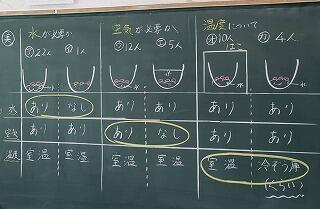 実 水が必要か 空気が必要か 温度について
㋐22人 ㋑1人 ㋒12人 ㋓5人 ㋔10人 ㋕4人
はこ
水
水 あり なし あり あり あり あり
空気 あり あり あり なし あり あり
温度 室温 室温 室温 室温 室温 冷ぞう庫
(くらい)